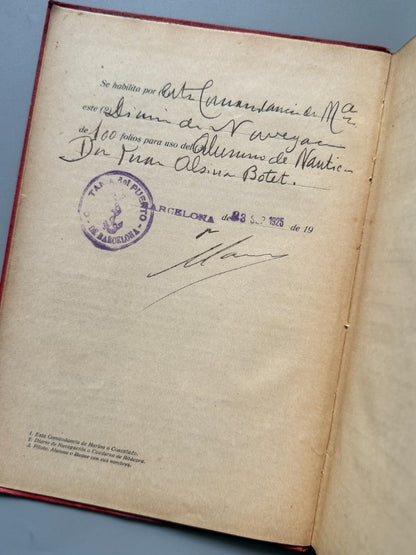 Se habilita por (1) esta Comandancia de Mar.ª
este (2) Diario de Navegac
de 100 folios para uso del Alumno de Nautica
Don Juan Alsina Botet.
BARCELONA de 23 SEP 1925 de 19
CAPITANIA del PUERTO
DE BARCELONA
1. Esta Comandancia de Marina o Consulado.
2. Diario de Navegación o Cuaderno de Bitácora.
3. Piloto, Alumno o Buque con sus nombres.